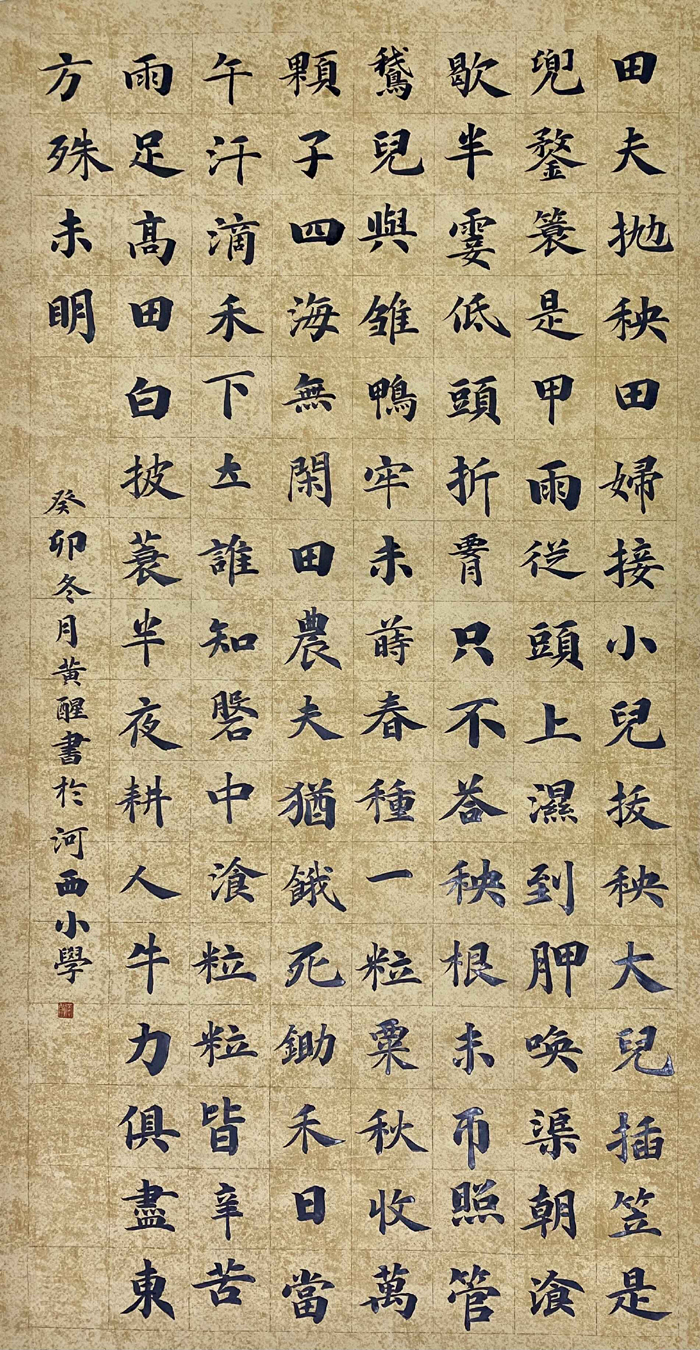 田夫抛秧田婦接小兒拔秧大兒插笠是
兜鍪簑是甲雨従頭上濕到胛喚渠朝飡
歇半霎低頭折霄只不荅秧根未帀照管
鵞兒與雏鴨牢未蒔春種一粒粟秋收萬
顆子四海無閑田農夫猶餓死鋤禾日當
午汗滴禾下圡誰知磐中飡粒粒皆辛苦
雨足髙田白披蓑半夜耕人牛力俱盡東
方殊未明
癸卯冬月黄醒書於河西小學